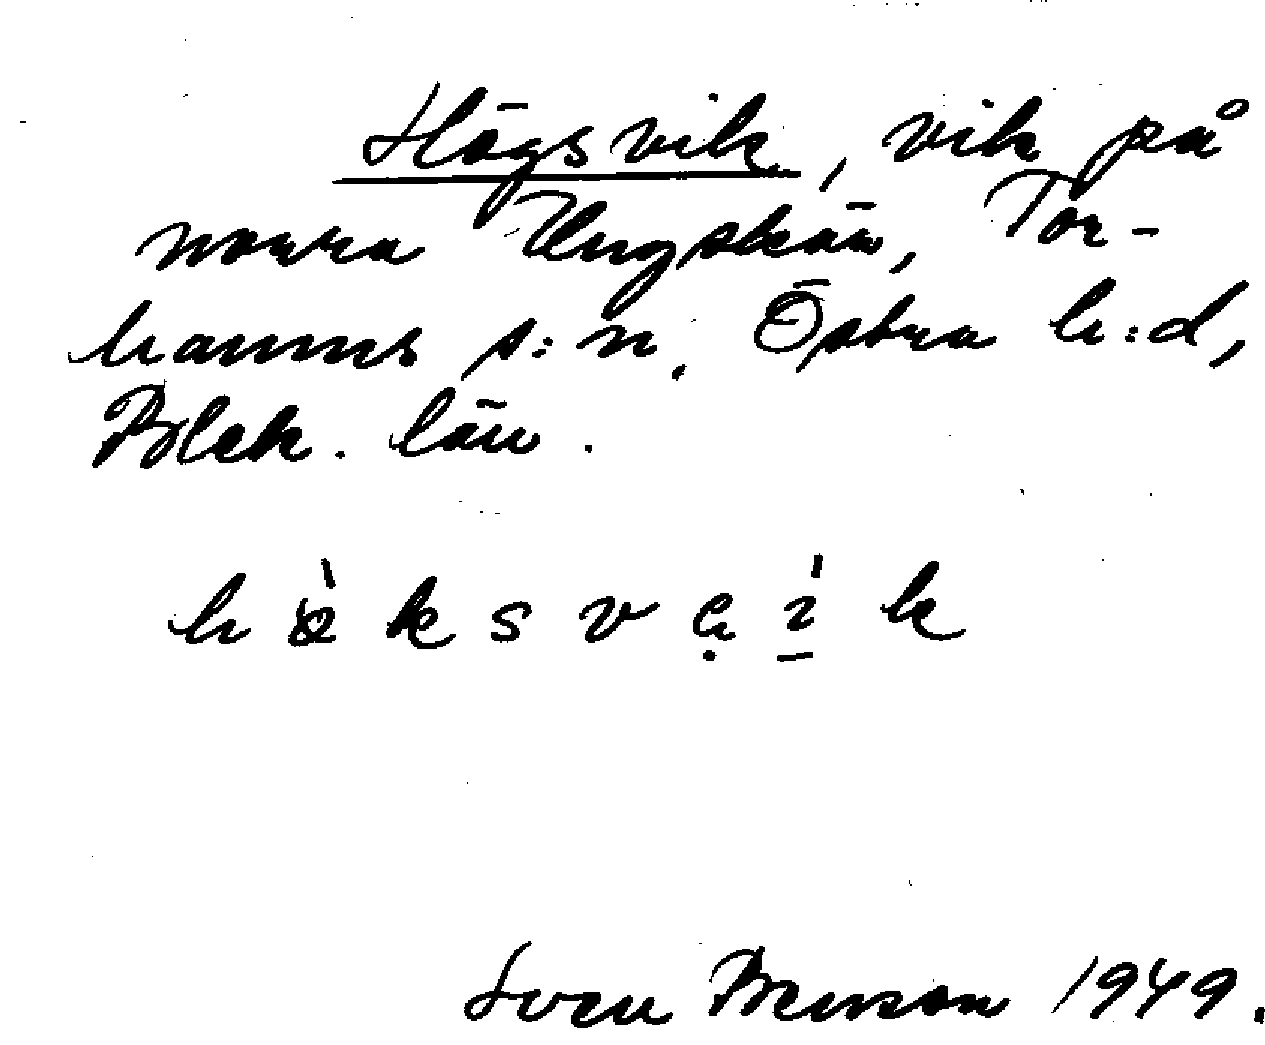 Högsvik, vik på
norra Ungskär, Tor-
hamns s:n. Östra h:d,
Blek. län.
Sven Benson 1949.